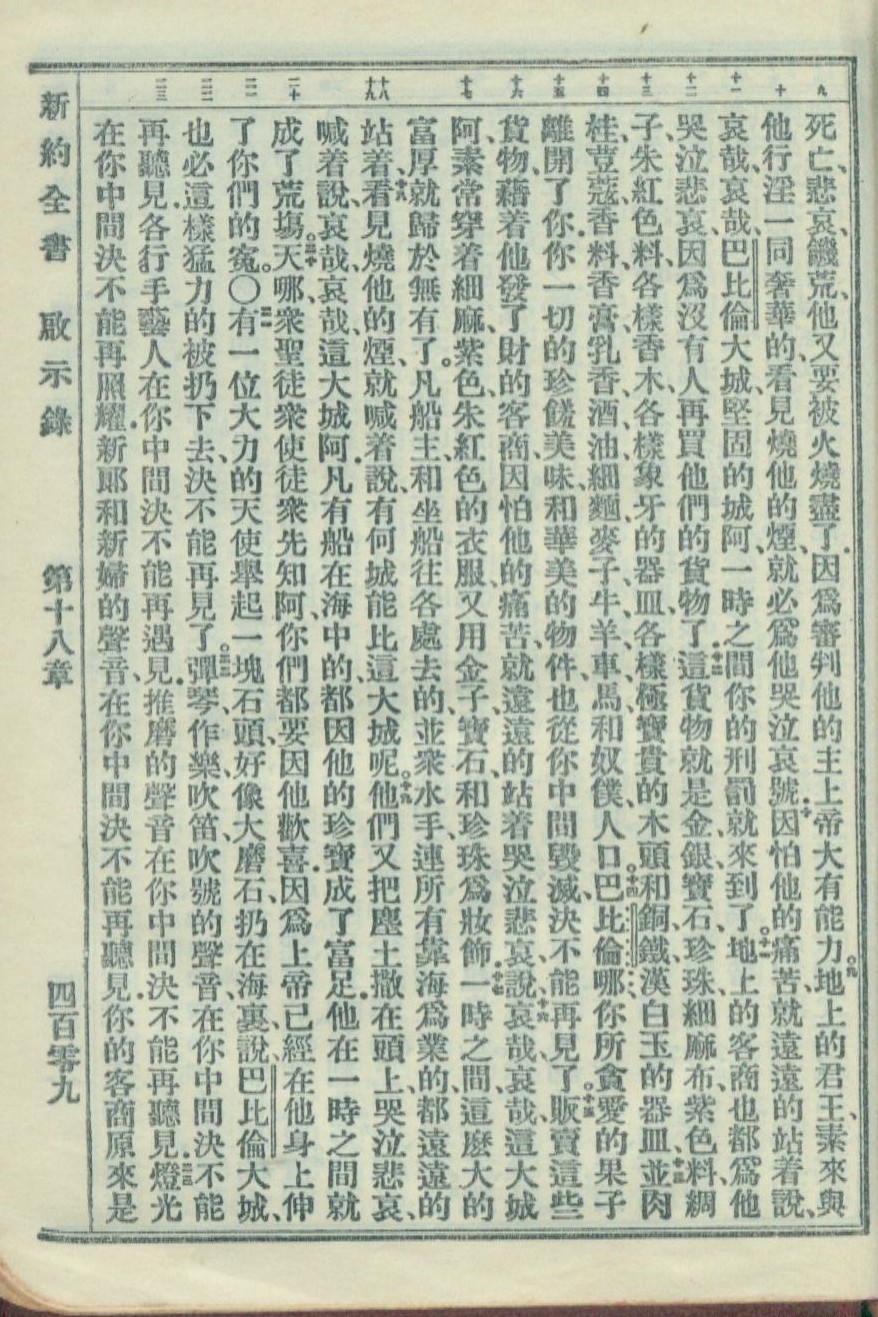 九 十 十一 十二 十三 十四 十五 十六 十七 十八 十九 二十 二一 二二 二三
死亡、悲哀、饑荒、他又要被火燒盡了．因爲審判他的主上帝大有能力。九地上的君王、素來與
他行淫一同奢華的、看見燒他的煙、就必爲他哭泣哀號．十因怕他的痛苦、就遠遠的站着說、
哀哉、哀哉、巴比倫大城、堅固的城阿、一時之間你的刑罰就來到了。十一地上的客商也都爲他
哭泣悲哀、因爲沒有人再買他們的貨物了．十二這貨物就是金、銀、寶石、珍珠、細麻布、紫色料、綢
子、朱紅色料、各樣香木、各樣象牙的器皿、各樣極寶貴的木頭和銅、鐵、漢白玉的器皿、十三並肉
桂、荳蔻、香料、香膏、乳香、酒、油、細麵、麥子、牛、羊、車、馬、和奴僕、人口。十四巴比倫哪、你所貪愛的果子
離開了你、你一切的珍饈美味、和華美的物件、也從你中間毀滅、決不能再見了。十五販賣這些
貨物、藉着他發了財的客商、因怕他的痛苦、就遠遠的站着哭泣悲哀、說、十六哀哉、哀哉、這大城
阿、素常穿着細麻、紫色、朱紅色的衣服、又用金子、寶石、和珍珠爲妝飾．十七一時之間、這麽大的
富厚就歸於無有了。凡船主、和坐船往各處去的、並衆水手、連所有靠海爲業的、都遠遠的
站着、十八看見燒他的煙、就喊着說、有何城能比這大城呢。十九他們又把塵土撒在頭上、哭泣悲哀、
喊着說、哀哉、哀哉、這大城阿．凡有船在海中的、都因他的珍寶成了富足．他在一時之間就
成了荒塲。二十天哪、衆聖徒衆使徒衆先知阿、你們都要因他歡喜．因爲上帝已經在他身上伸
了你們的寃。〇二一有一位大力的天使舉起一塊石頭、好像大磨石、扔在海裏、說、巴比倫大城、
也必這樣猛力的被扔下去、決不能再見了。二二彈琴、作樂、吹笛、吹號的聲音、在你中間決不能
再聽見．各行手藝人在你中間決不能再遇見．推磨的聲音在你中間決不能再聽見．二三燈光
在你中間決不能再照耀．新郎和新婦的聲音、在你中間決不能再聽見．你的客商原來是
新約全書 啟示錄 第十八章 四百零九